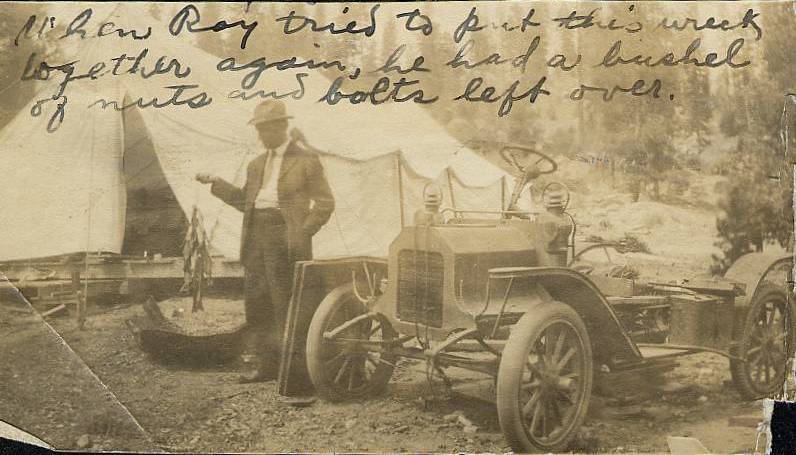 When Roy tried to put this wreck
together again, he had a bushel
of nuts and bolts left over.